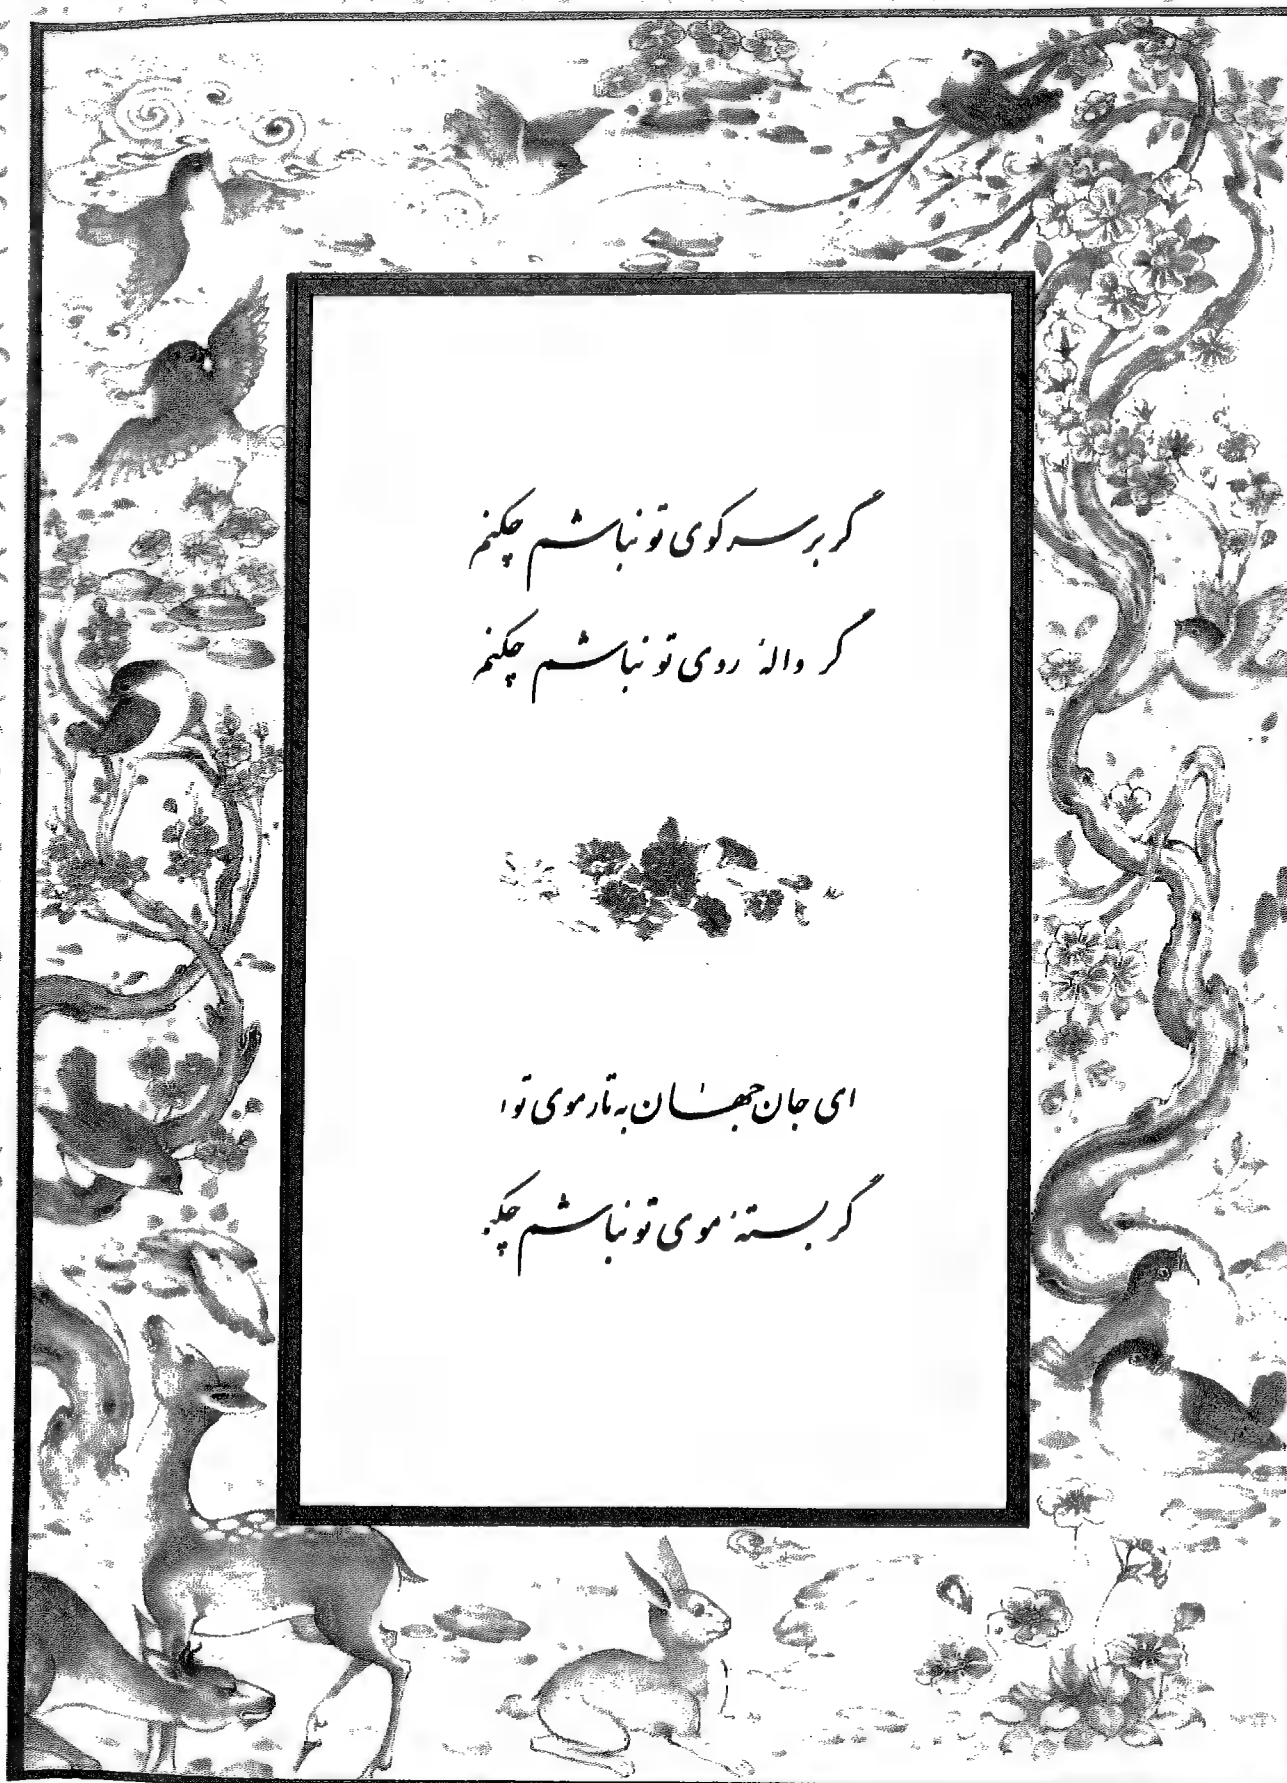 گر بر سر کوی تو نباشم چکنم
گر والهٔ روی تو نباشم چکنم
ای جان جهان به تار موی تو ا
گر بستهٔ موی تو نباشم چکنم